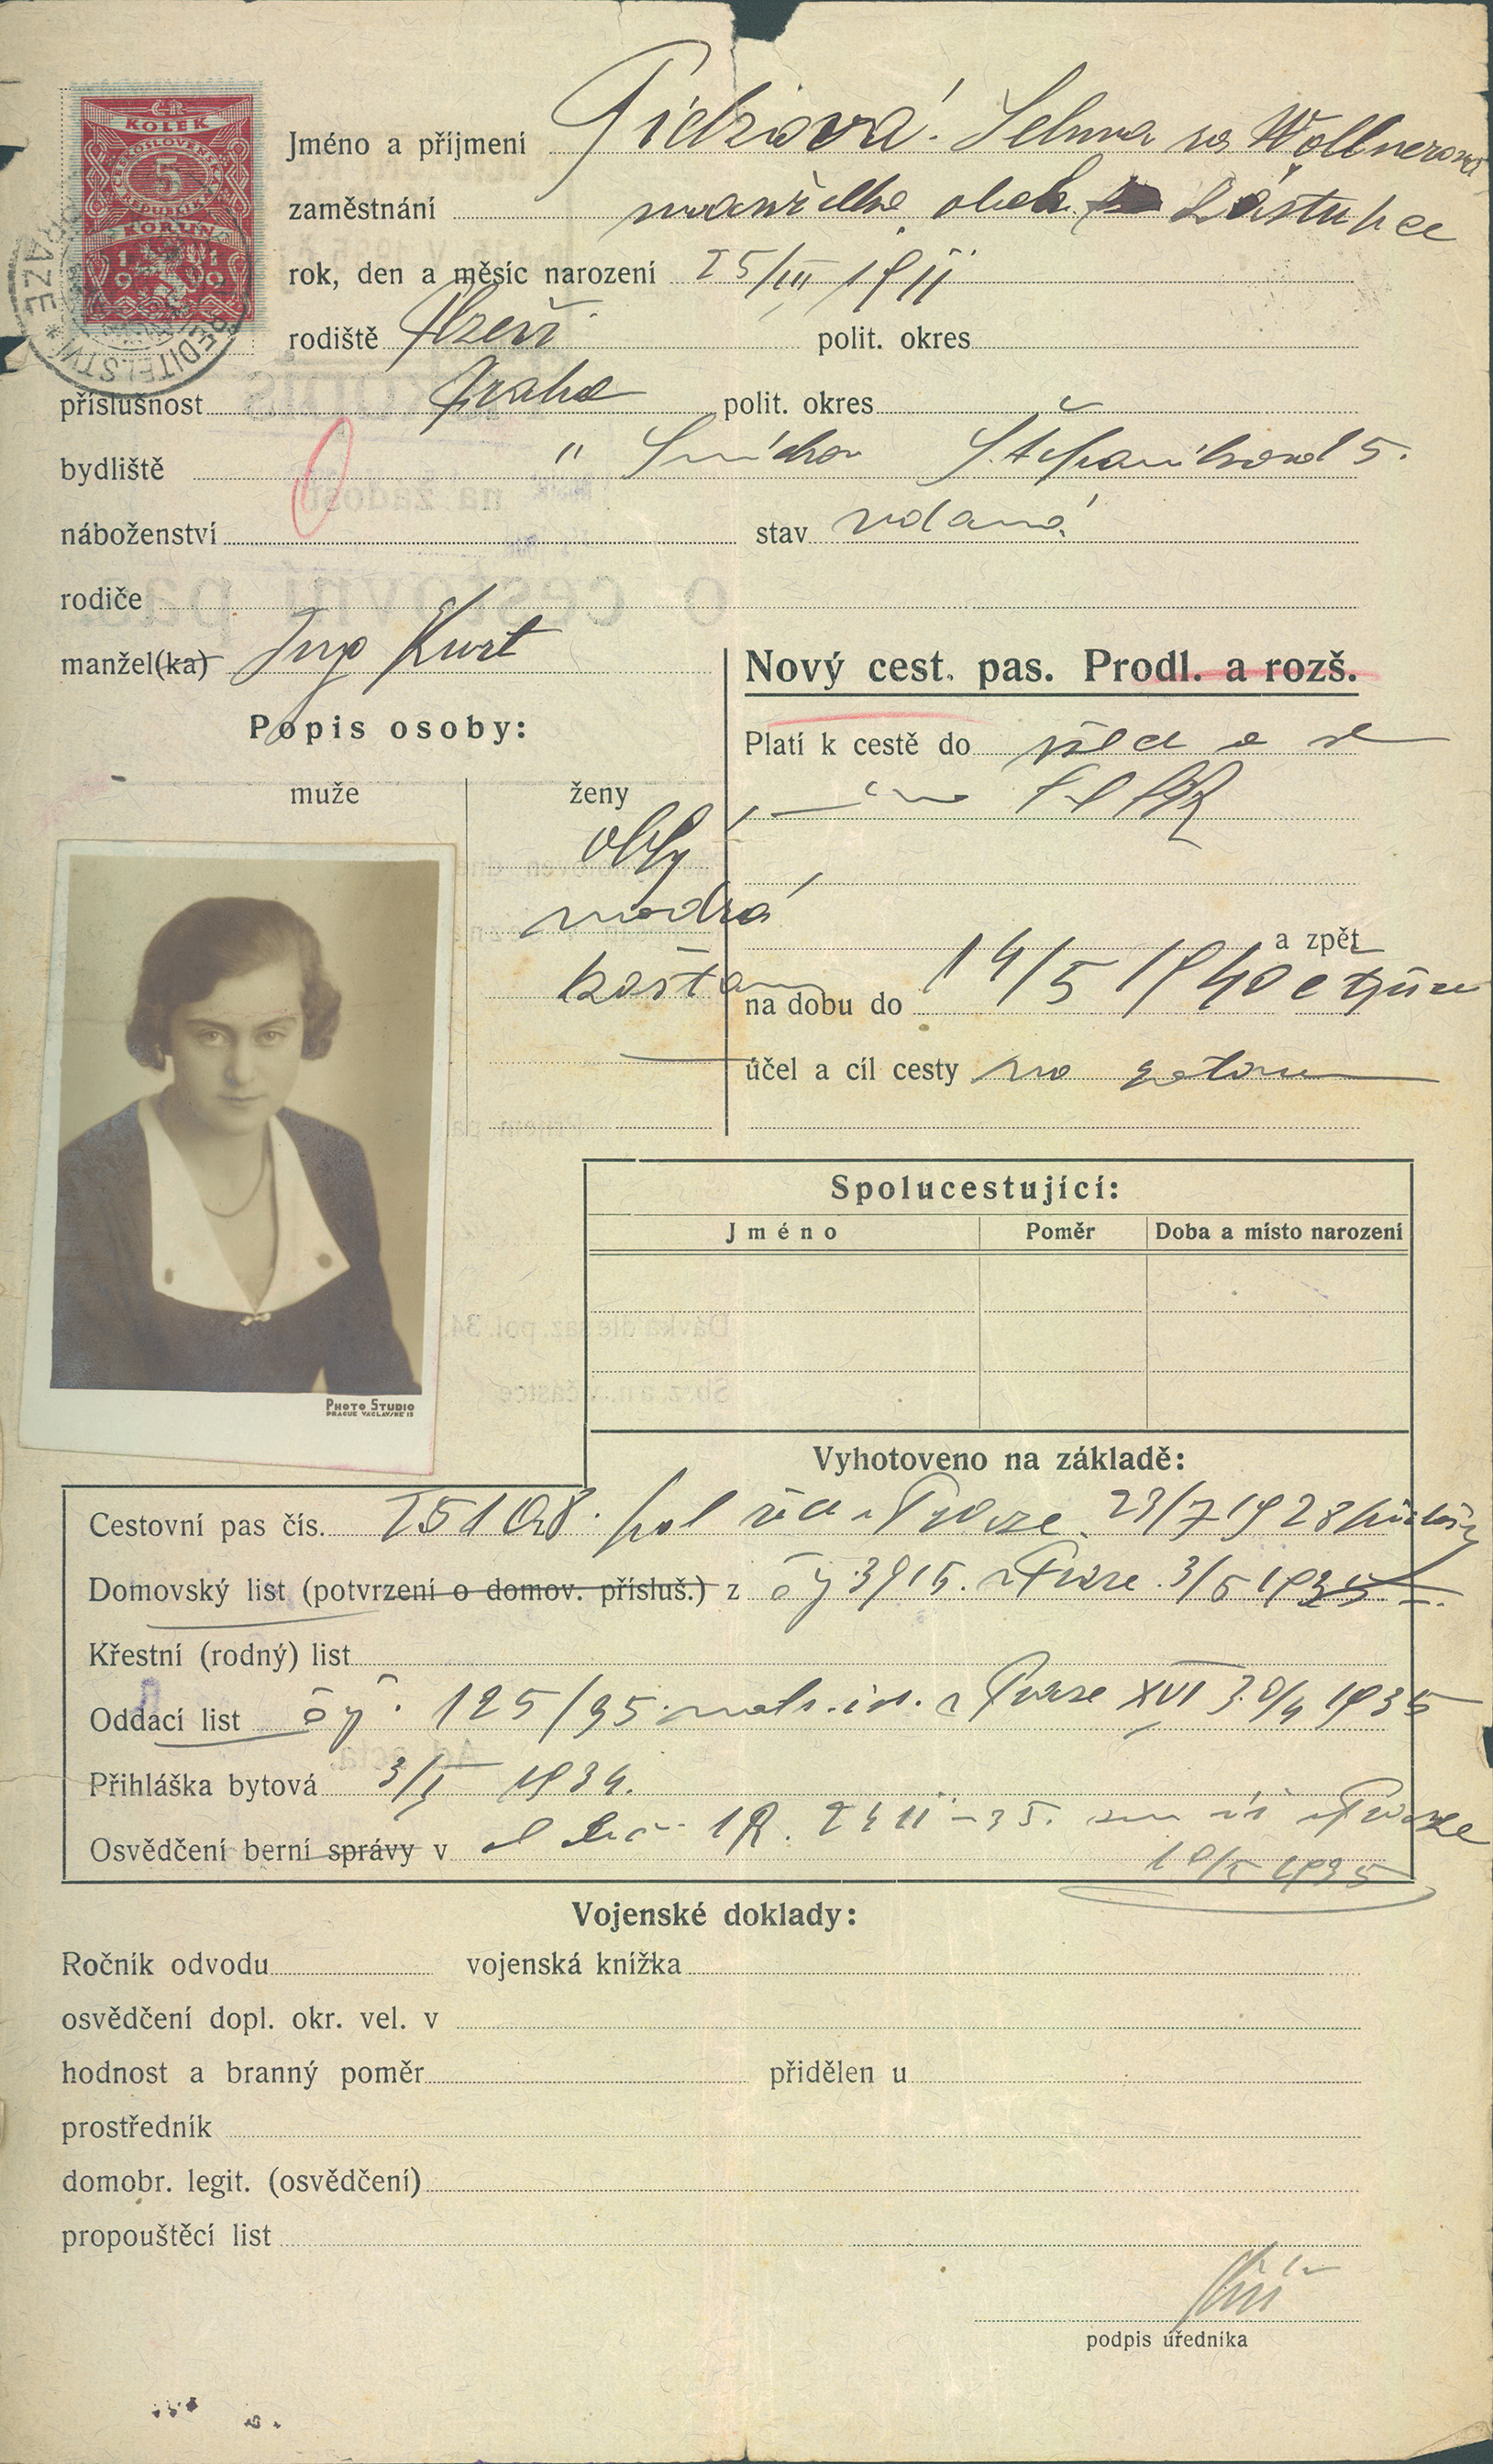 ČR
KOLEK
ČESKOSLOVENSKÁ
5
REPUBLIKA
KORUN
1919
ŘEDITELSTVÍ * PRAZE *
Jméno a příjmení Picková Selma roz Wollnerová
zaměstnání manželka obch. zástupce
rok, den a měsíc narození 25/III 1911
rodiště Plzeň polit. okres
příslušnost Praha polit. okres
bydliště " Smíchov Štefanikova 5.
náboženství stav vdaná
rodiče
manžel(ka) Ing Kurt
Nový cest. pas. Prodl. a rozš.
Popis osoby:
Platí k cestě do
muže ženy
oblý
modrá
kaštan
a zpět
na dobu do 14/5 1940
účel a cíl cesty
Spolucestující:
Jméno Poměr Doba a místo narození
PHOTO STUDIO
PRAGUE VACLAVSKE 15
Vyhotoveno na základě:
Cestovní pas čís. pol 23/7 1928
Domovský list (potvrzení o domov. přísluš.) z čj 3915. v Praze 3/5 1935
Křestní (rodný) list
Oddací list čj. 125/35 v Praze XVI 30/4 1935
Přihláška bytová 3/I 1934.
Osvědčení berní správy v v Praze
10/5 1935
Vojenské doklady:
Ročník odvodu vojenská knížka
osvědčení dopl. okr. vel. v
hodnost a branný poměr přidělen u
prostředník
domobr. legit. (osvědčení)
propouštěcí list
podpis úředníka